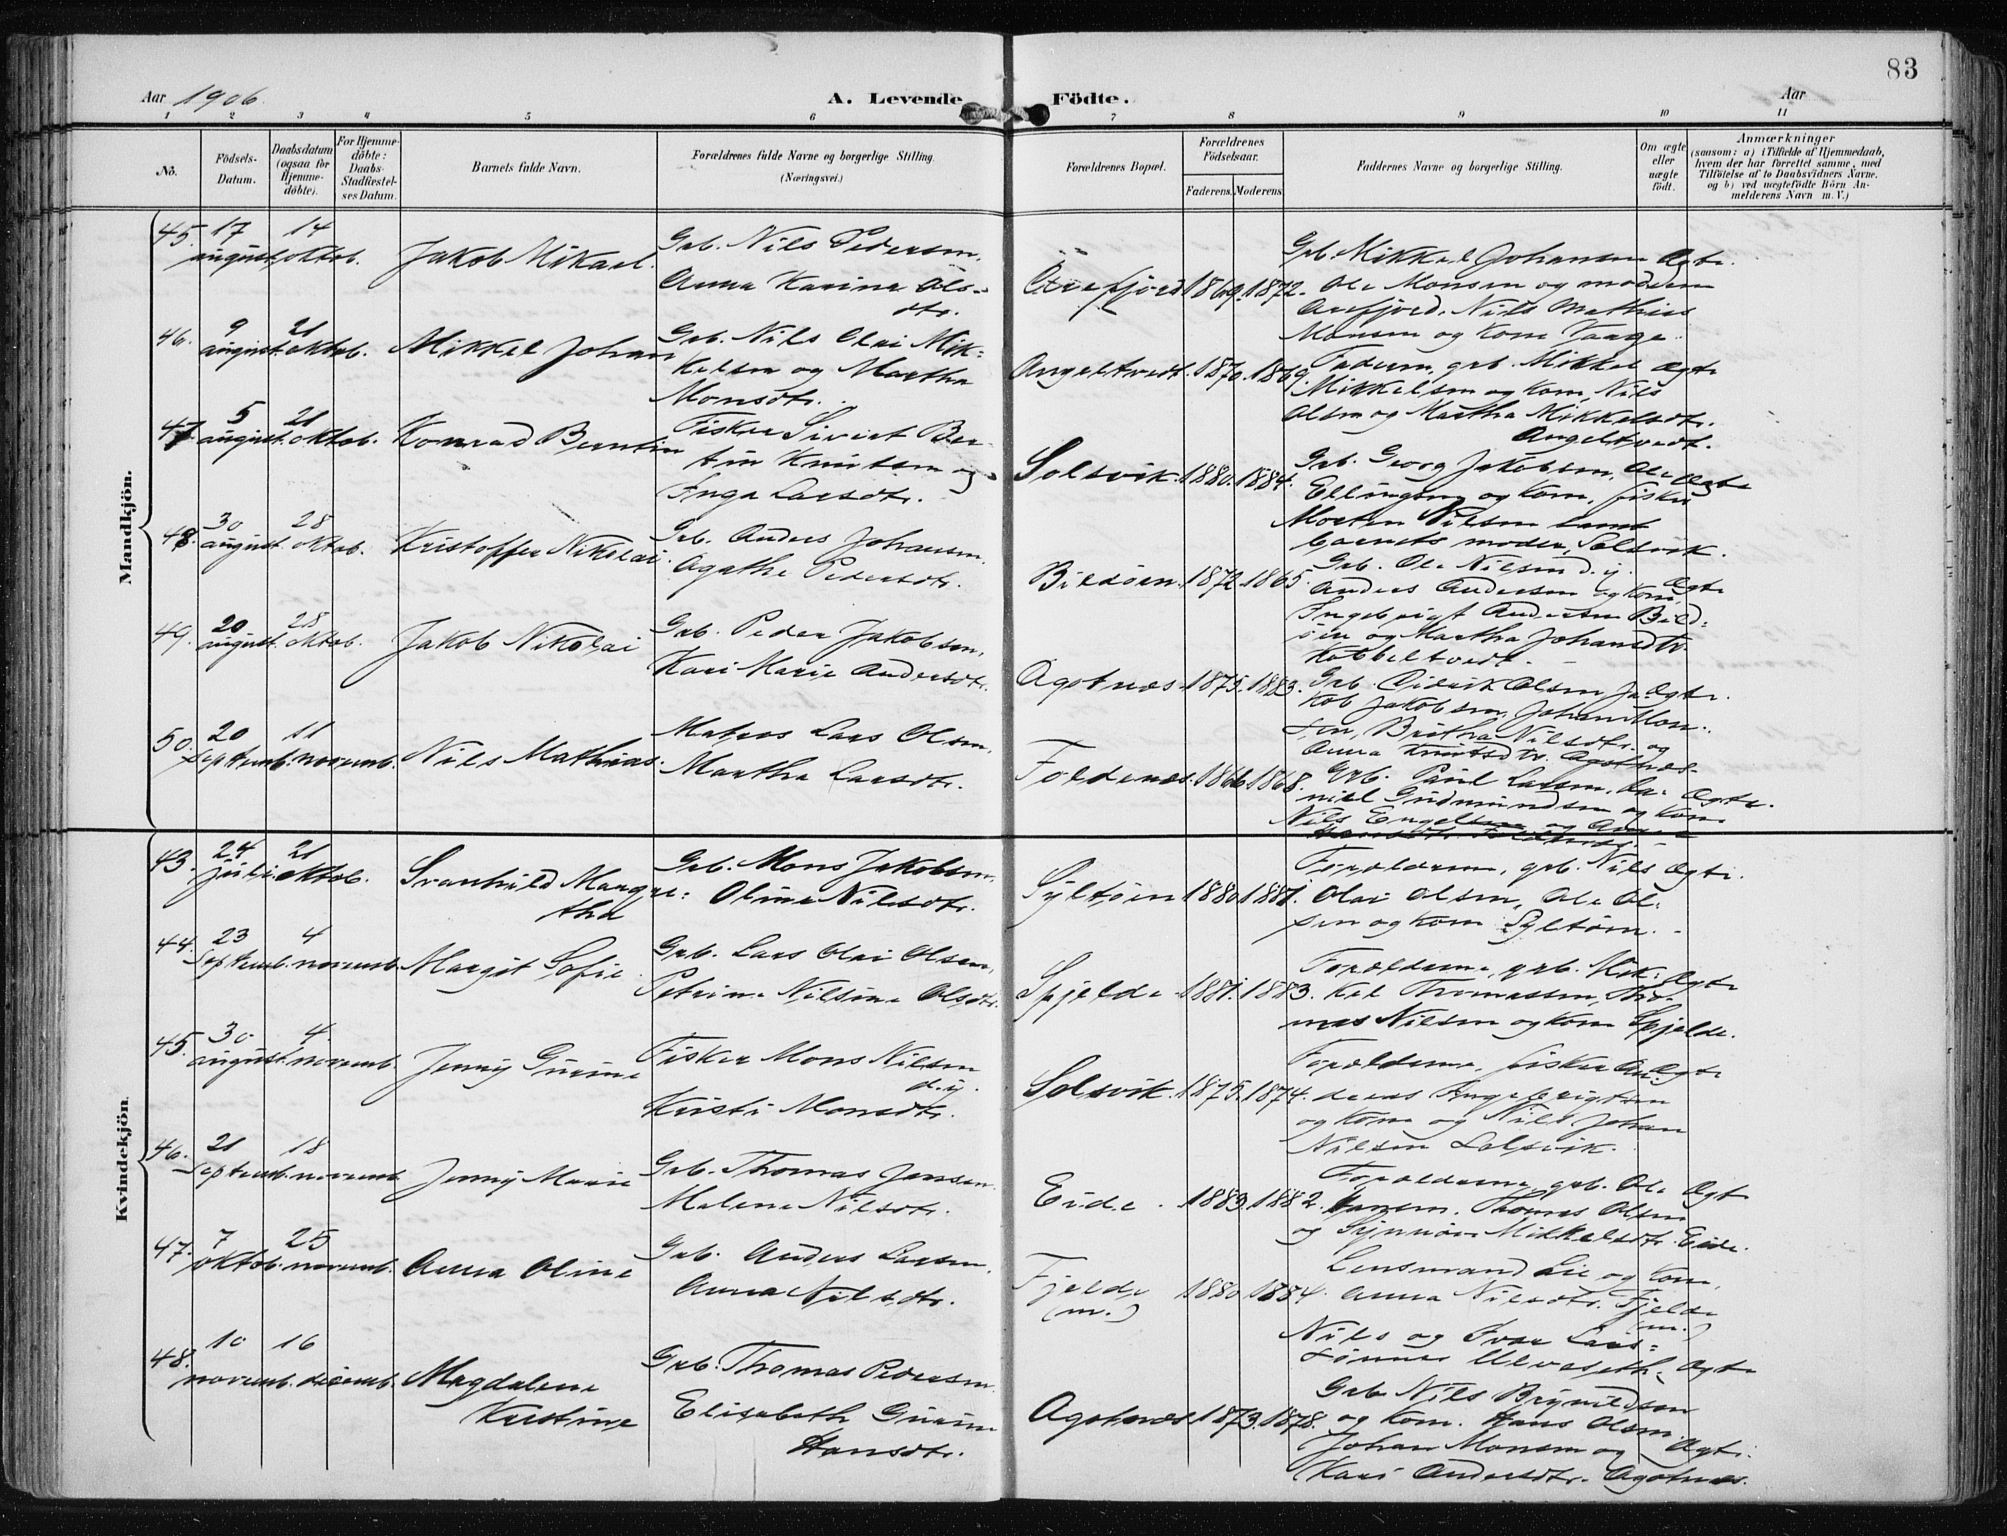 83
Aar 1906.
A. Levende Födte.
Aar
1 2 3 4 5 6 7 8 9 10 11
No.
Födsels-Datum.
Daabsdatum (ogsaa for Hjemmedöbte).
For Hjemmedöbte: Daabs-Stadfæstelses Datum.
Barnets fulde Navn.
Forældrenes fulde Navne og borgerlige Stilling.
(Næringsvei.)
Forældrenes Bopæl.
Forældrenes Födselsaar.
Faderens. Moderens.
Faddernes Navne og borgerlige Stilling.
Om ægte eller uægte födt.
Anmærkninger
(saasom: a) i Tilfælde af Hjemmedaab,
hvem der har forrettet samme, med
Tilföielse af to Daabsvidners Navne.
og b) ved uægtefödte Börn An-
melderens Navn m. V.)
Mandkjön.
45. 17 august. 14 oktob. Jakob Mikael.
Grb. Nils Pedersen.
Anna Karina Ols-
dtr.
1869. 1872.
Grb. Mikkel Johansen Ægte.
Ole Monsen og moderen
Nils Mathias
Monsen og Kone
46. 9 august. 21 oktob. Mikkel Johan
Grb. Nils Olai Mik-
kelsen og Martha
Monsdtr.
Angeltvedt. 1870. 1869.
Faderen, grb. Mikkel Ægte
Mikkelsen og kone, Nils
Olsen og Martha Mikkelsdtr.
Angeltvedt.
47 5 august. 21 oktob. Konrad Berntin
Fisker Sivert Ber-
tin Knutsen og
Inga Larsdtr.
Solsvik. 1880. 1884.
Grb. Georg Jakobsen, Ole Ægte
Ellingsen og kone, fisker
Morten Nilsen samt
barnets moder, Solsvik.
48. 30 august. 28 oktob. Kristoffer Nikolai.
Grb. Anders Johansen.
Agathe Pedersdtr.
Bildöen. 1872. 1865.
Grb. Ole Nilsen d.y. Ægte
Anders Andersen og kone,
Ingebrigt Andersen Bild-
öen og Martha Johansdtr.
Kobbeltvedt.
49. 20 august. 28 oktob. Jakob Nikolai
Grb. Peder Jakobsen.
Kari Marie Andersdtr.
Agotnæs. 1875. 1883.
Grb. Didrik Olsen, Ja- Ægte.
kob Jakobsen, Johan Mon-
sen, Britha Nilsdtr. og
Anna Knutsdtr. Agotnæs.
50. 20 septemb. 11 novemb. Nils Mathias.
Matros Lars Olsen.
Martha Larsdtr.
Foldenæs. 1866. 1868.
Grb. Paul Larsen, Da- Ægte.
niel Gudmundsen og kone
Nils Engelsen og Anna
Kvindekjön.
43. 24 juli. 21 oktob. Svanhild Margre-
tha
Grb. Mons Jakobsen.
Oline Nilsdtr.
Syltöen 1880 1881.
Forældrene, grb. Nils Ægte.
Olai Olsen, Ole Ol-
sen og kone Syltöen.
44. 23 septemb. 4 novemb. Margit Sofie.
Grb. Lars Olai Olsen.
Petrine Nilsine Olsdtr.
Spjelde 1881. 1883.
Forældrene, grb. Mik- Ægte
kel Thomassen, Tho-
mas Nilsen og kone Spjelde.
45. 30 august. 4. novemb. Jenny Gurine
Fisker Mons Nilsen
d.y.
Kristi Monsdtr.
Solsvik. 1875. 1874.
Forældrene, fisker An- Ægte
ders Ingebrigtsen
og kone og Nils Johan
Nilsen Solsvik.
46. 21 septemb. 18 novemb. Jenny Marie
Grb. Thomas Jensen.
Malene Nilsdtr.
Eide. 1883. 1882.
Forældrene, grb. Ole Ægte
Hansen, Thomas Olsen
og Synnöve Mikkelsdtr. Eide.
47. 7 oktob. 25 novemb. Anna Oline
Grb. Anders Larsen.
Anna Nilsdtr.
Fjelde (m.) 1880 1884.
Lensmand Lie og kone,
Anna Nilsdtr. Fjelde
(m.)
Nils og Ivar Lars-
sönner Ulveseth. Ægte
48. 10 novemb. 16 decemb. Magdalene
Kristine
Grb. Thomas Pedersen.
Elisabeth Gurine
Hansdtr.
Agotnæs 1873. 1878.
Grb. Nils Brynildsen
og kone. Hans Olsen,
Johan Monsen og Ægte.
Kari Andersdtr. Agotnæs.